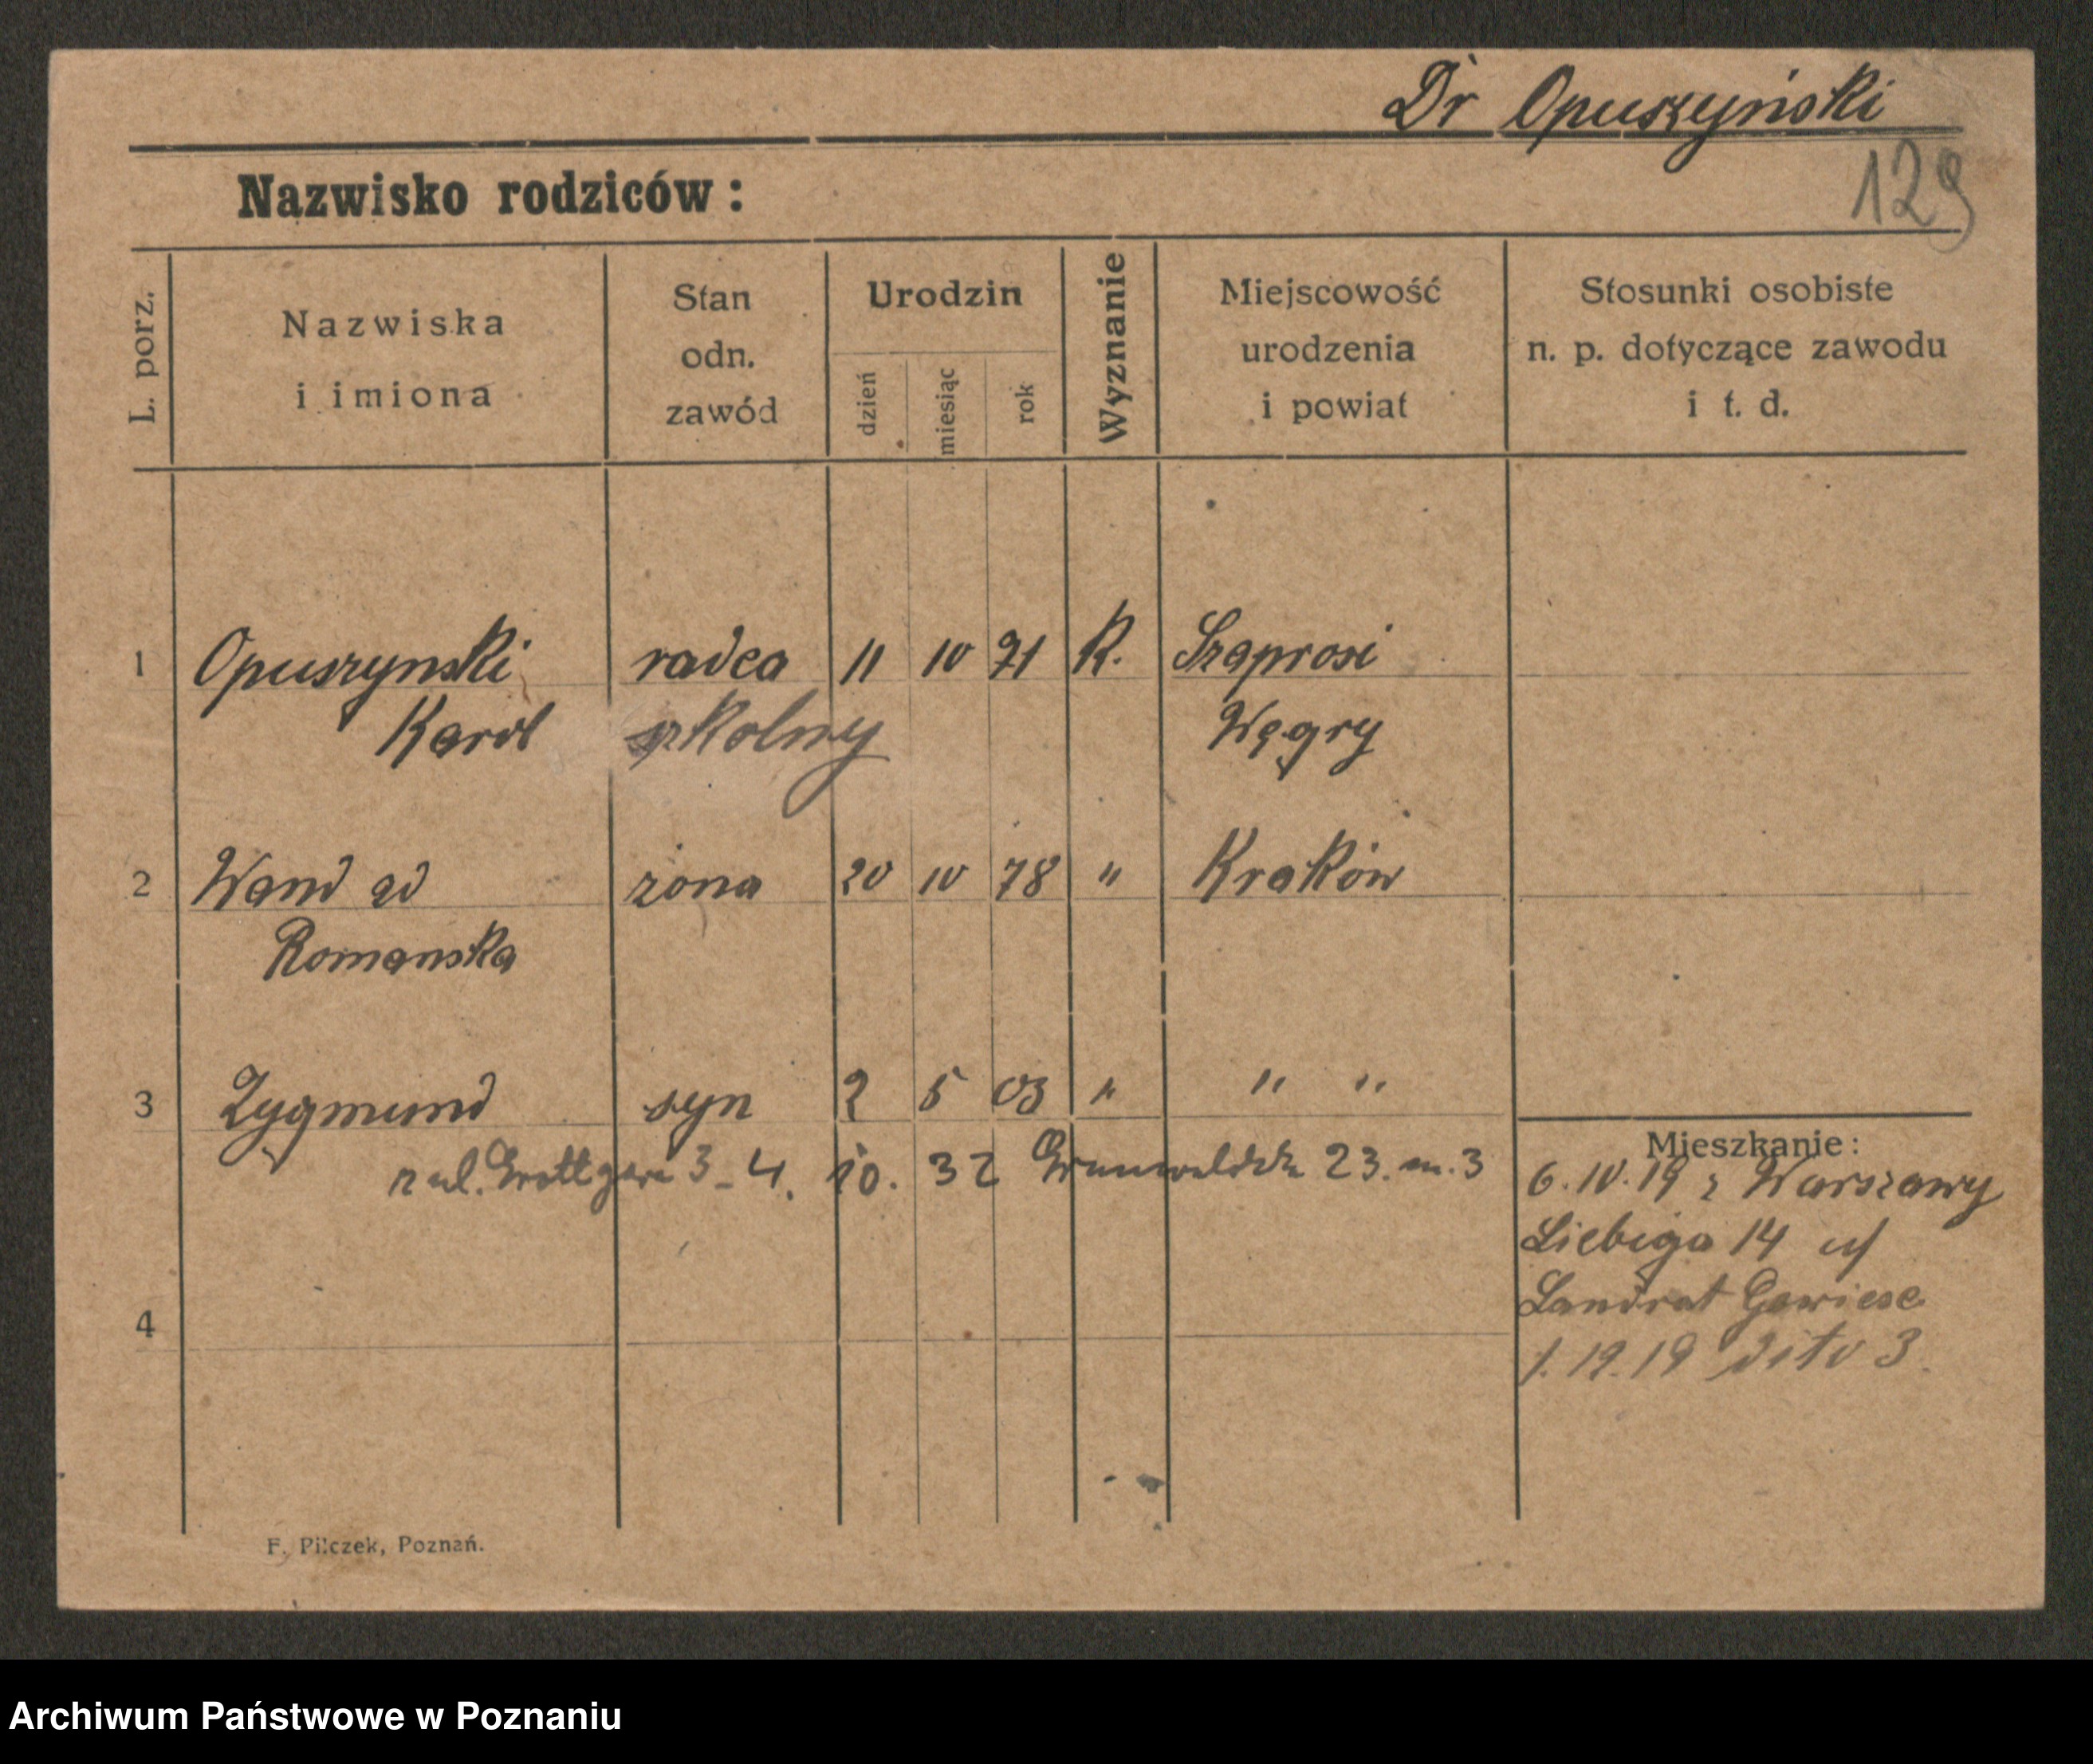 Dr Opuszyński
129
Nazwisko rodziców:
L. porz.
Nazwiska
i imiona
Stan
odn.
zawód
Urodzin
dzień
miesiąc
rok
Wyznanie
Miejscowość
urodzenia
i powiat
Stosunki osobiste
n. p. dotyczące zawodu
i t. d.
1 Opuszynski radca 11 10 71 K. Szaprosi
Karol szkolny Węgry
2 Wand zd żona 20 10 78 " Kraków
Romanska
3 Zygmund syn 2 5 03 " " "
z ul. Grottgera 3 - 4. 10. 32 Grunwaldzka 23. m. 3
Mieszkanie:
6.10.19 z Warszawy
Liebiga 14
Landrat
19.19 dito 3
4
F. Pilczek, Poznań.
Archiwum Państwowe w Poznaniu